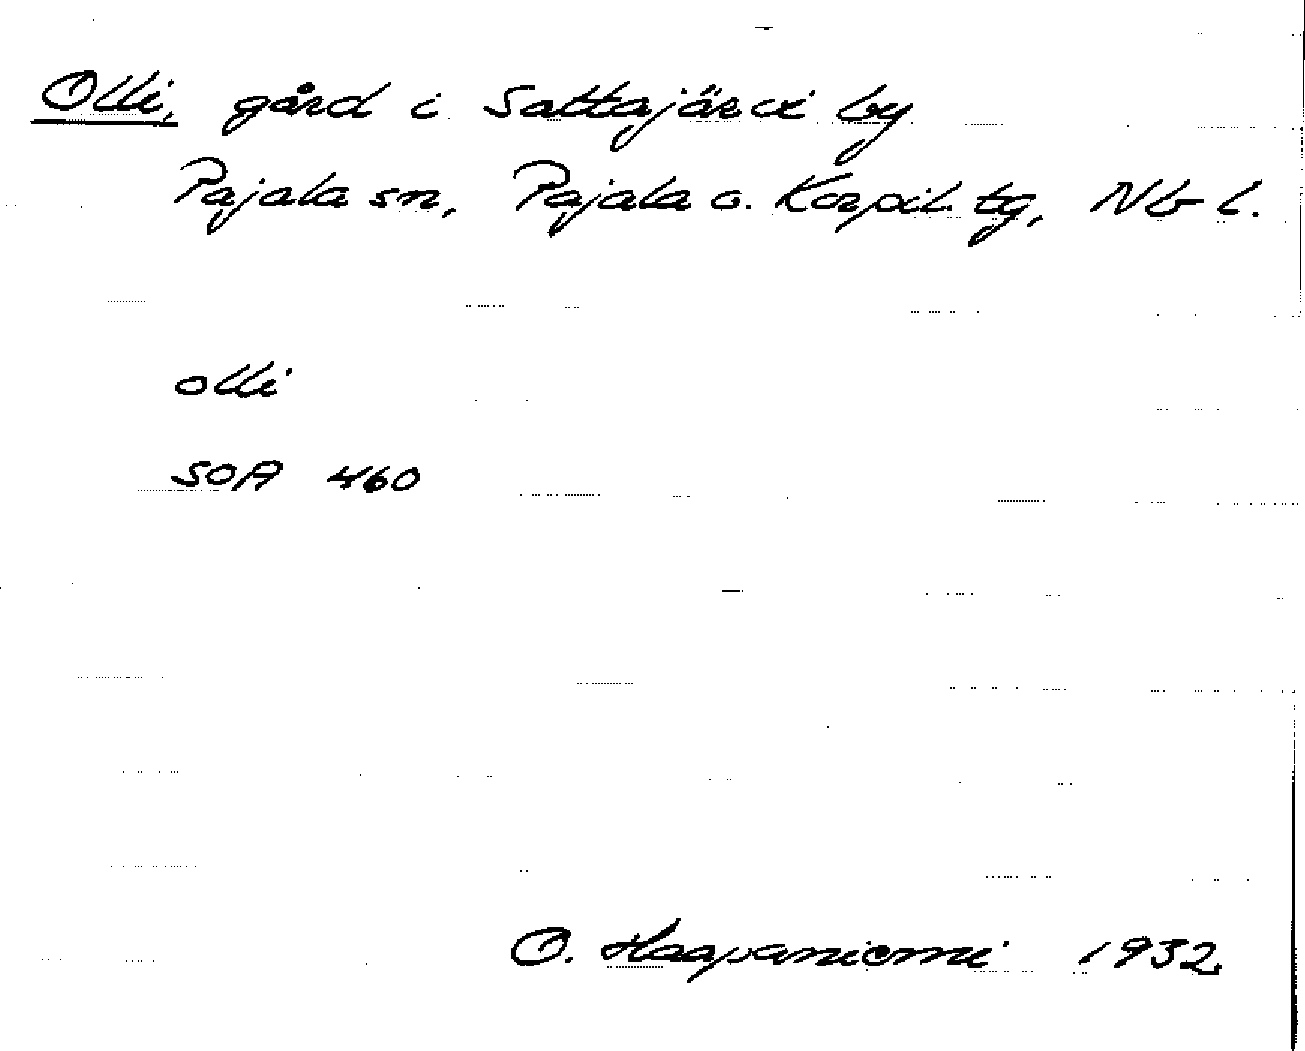 Olli, gård i Sattajärvi by
Pajala sn, Pajala o. Korpil. tg, Nb l.
olli
SOA 460
O. Haapaniemi 1932